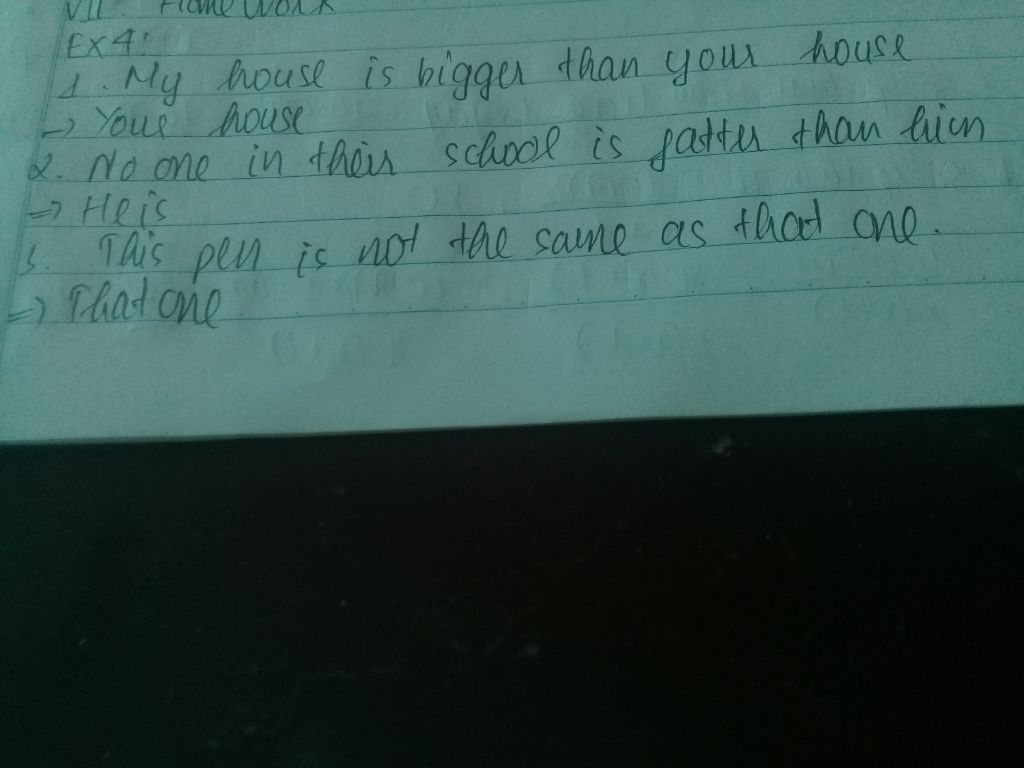 VII. Homework
EX4:
1. My house is bigger than your house
=> Your house
2. No one in their school is fatter than him
=> He is
3. This pen is not the same as that one.
=> That one